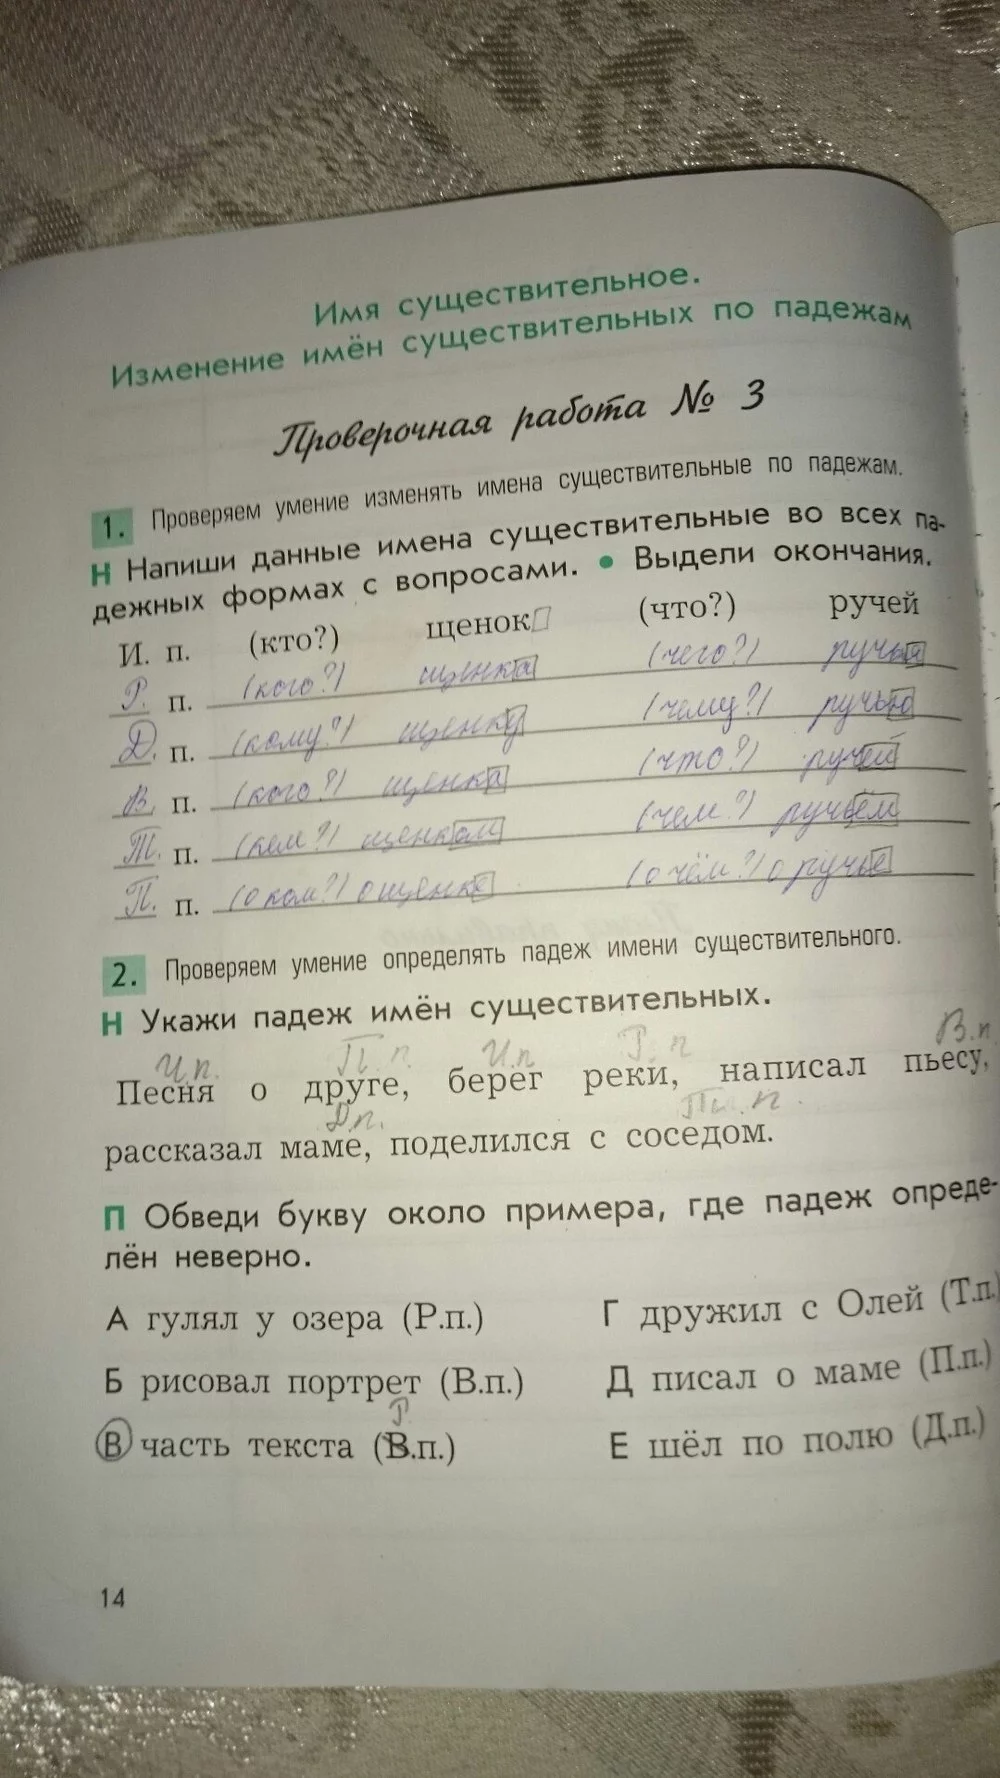 Имя существительное.
Изменение имён существительных по падежам
Проверочная работа № 3
1. Проверяем умение изменять имена существительные по падежам.
Н Напиши данные имена существительные во всех па-
дежных формах с вопросами. • Выдели окончания.
И. п. (кто?) щенок (что?) ручей
Р. п. (кого?) щенка (чего?) ручья
Д. п. (кому?) щенку (чему?) ручью
В. п. (кого?) щенка (что?) ручей
Т. п. (кем?) щенком (чем?) ручьём
П. п. (о ком?) о щенке (о чём?) о ручье
2. Проверяем умение определять падеж имени существительного.
Н Укажи падеж имён существительных.
И.п. П. п. И.п. Р. п В.п
Песня о друге, берег реки, написал пьесу,
Д.п. п.
рассказал маме, поделился с соседом.
П Обведи букву около примера, где падеж опреде-
лён неверно.
А гулял у озера (Р.п.) Г дружил с Олей (Т.п.)
Б рисовал портрет (В.п.) Д писал о маме (П.п.)
Р
В часть текста (В.п.) Е шёл по полю (Д.п.)
14